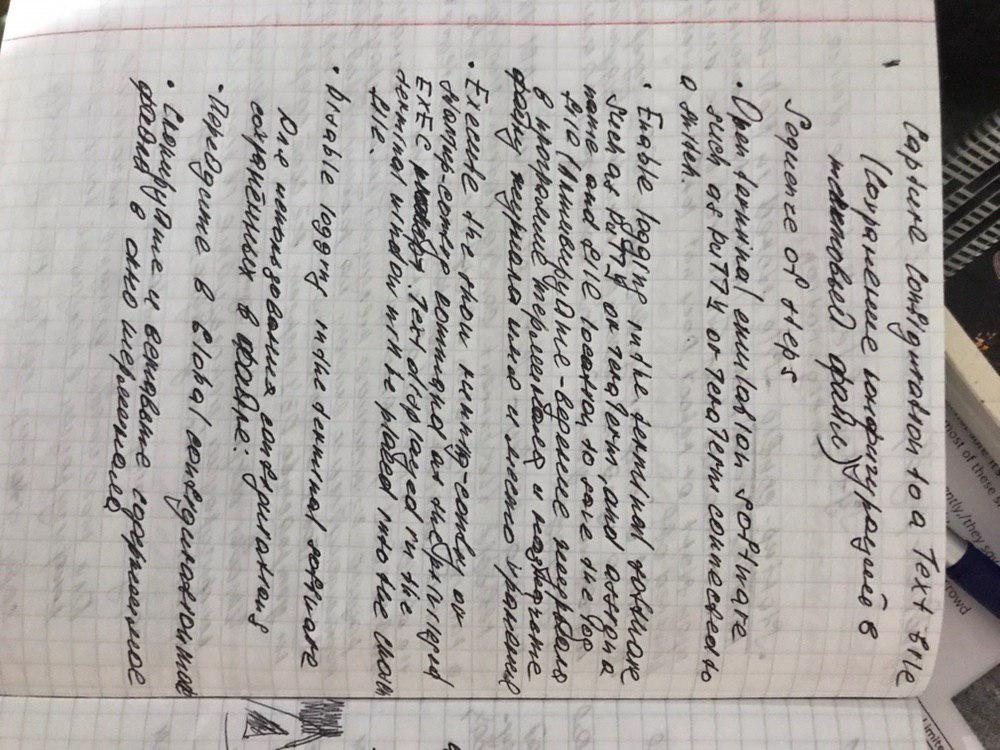 Capture Configuration to a Text File
(Сохранение конфигураций в
текстовый файл)
Sequence of steps
• Open terminal emulation software
such as PuTTY or TeraTerm connected to
a switch.
• Enable logging in the terminal software
such as PuTTY or TeraTerm, and assign a
name and file location to save the log
file (Активируйте ведение журнала
в программе терминала и назначьте
файлу журнала имя и место хранения
• Execute the show running-config or
startup-config command at the privileged
EXEC prompt. Text displayed in the
terminal window will be placed into the chosen
file.
• Disable logging in the terminal software
Для использования
сохранённых в файле:
• Перейдите в global configuration mode
• Скопируйте и вставьте содержимое
файла в окно терминала
most of these
ently/they so
rowd